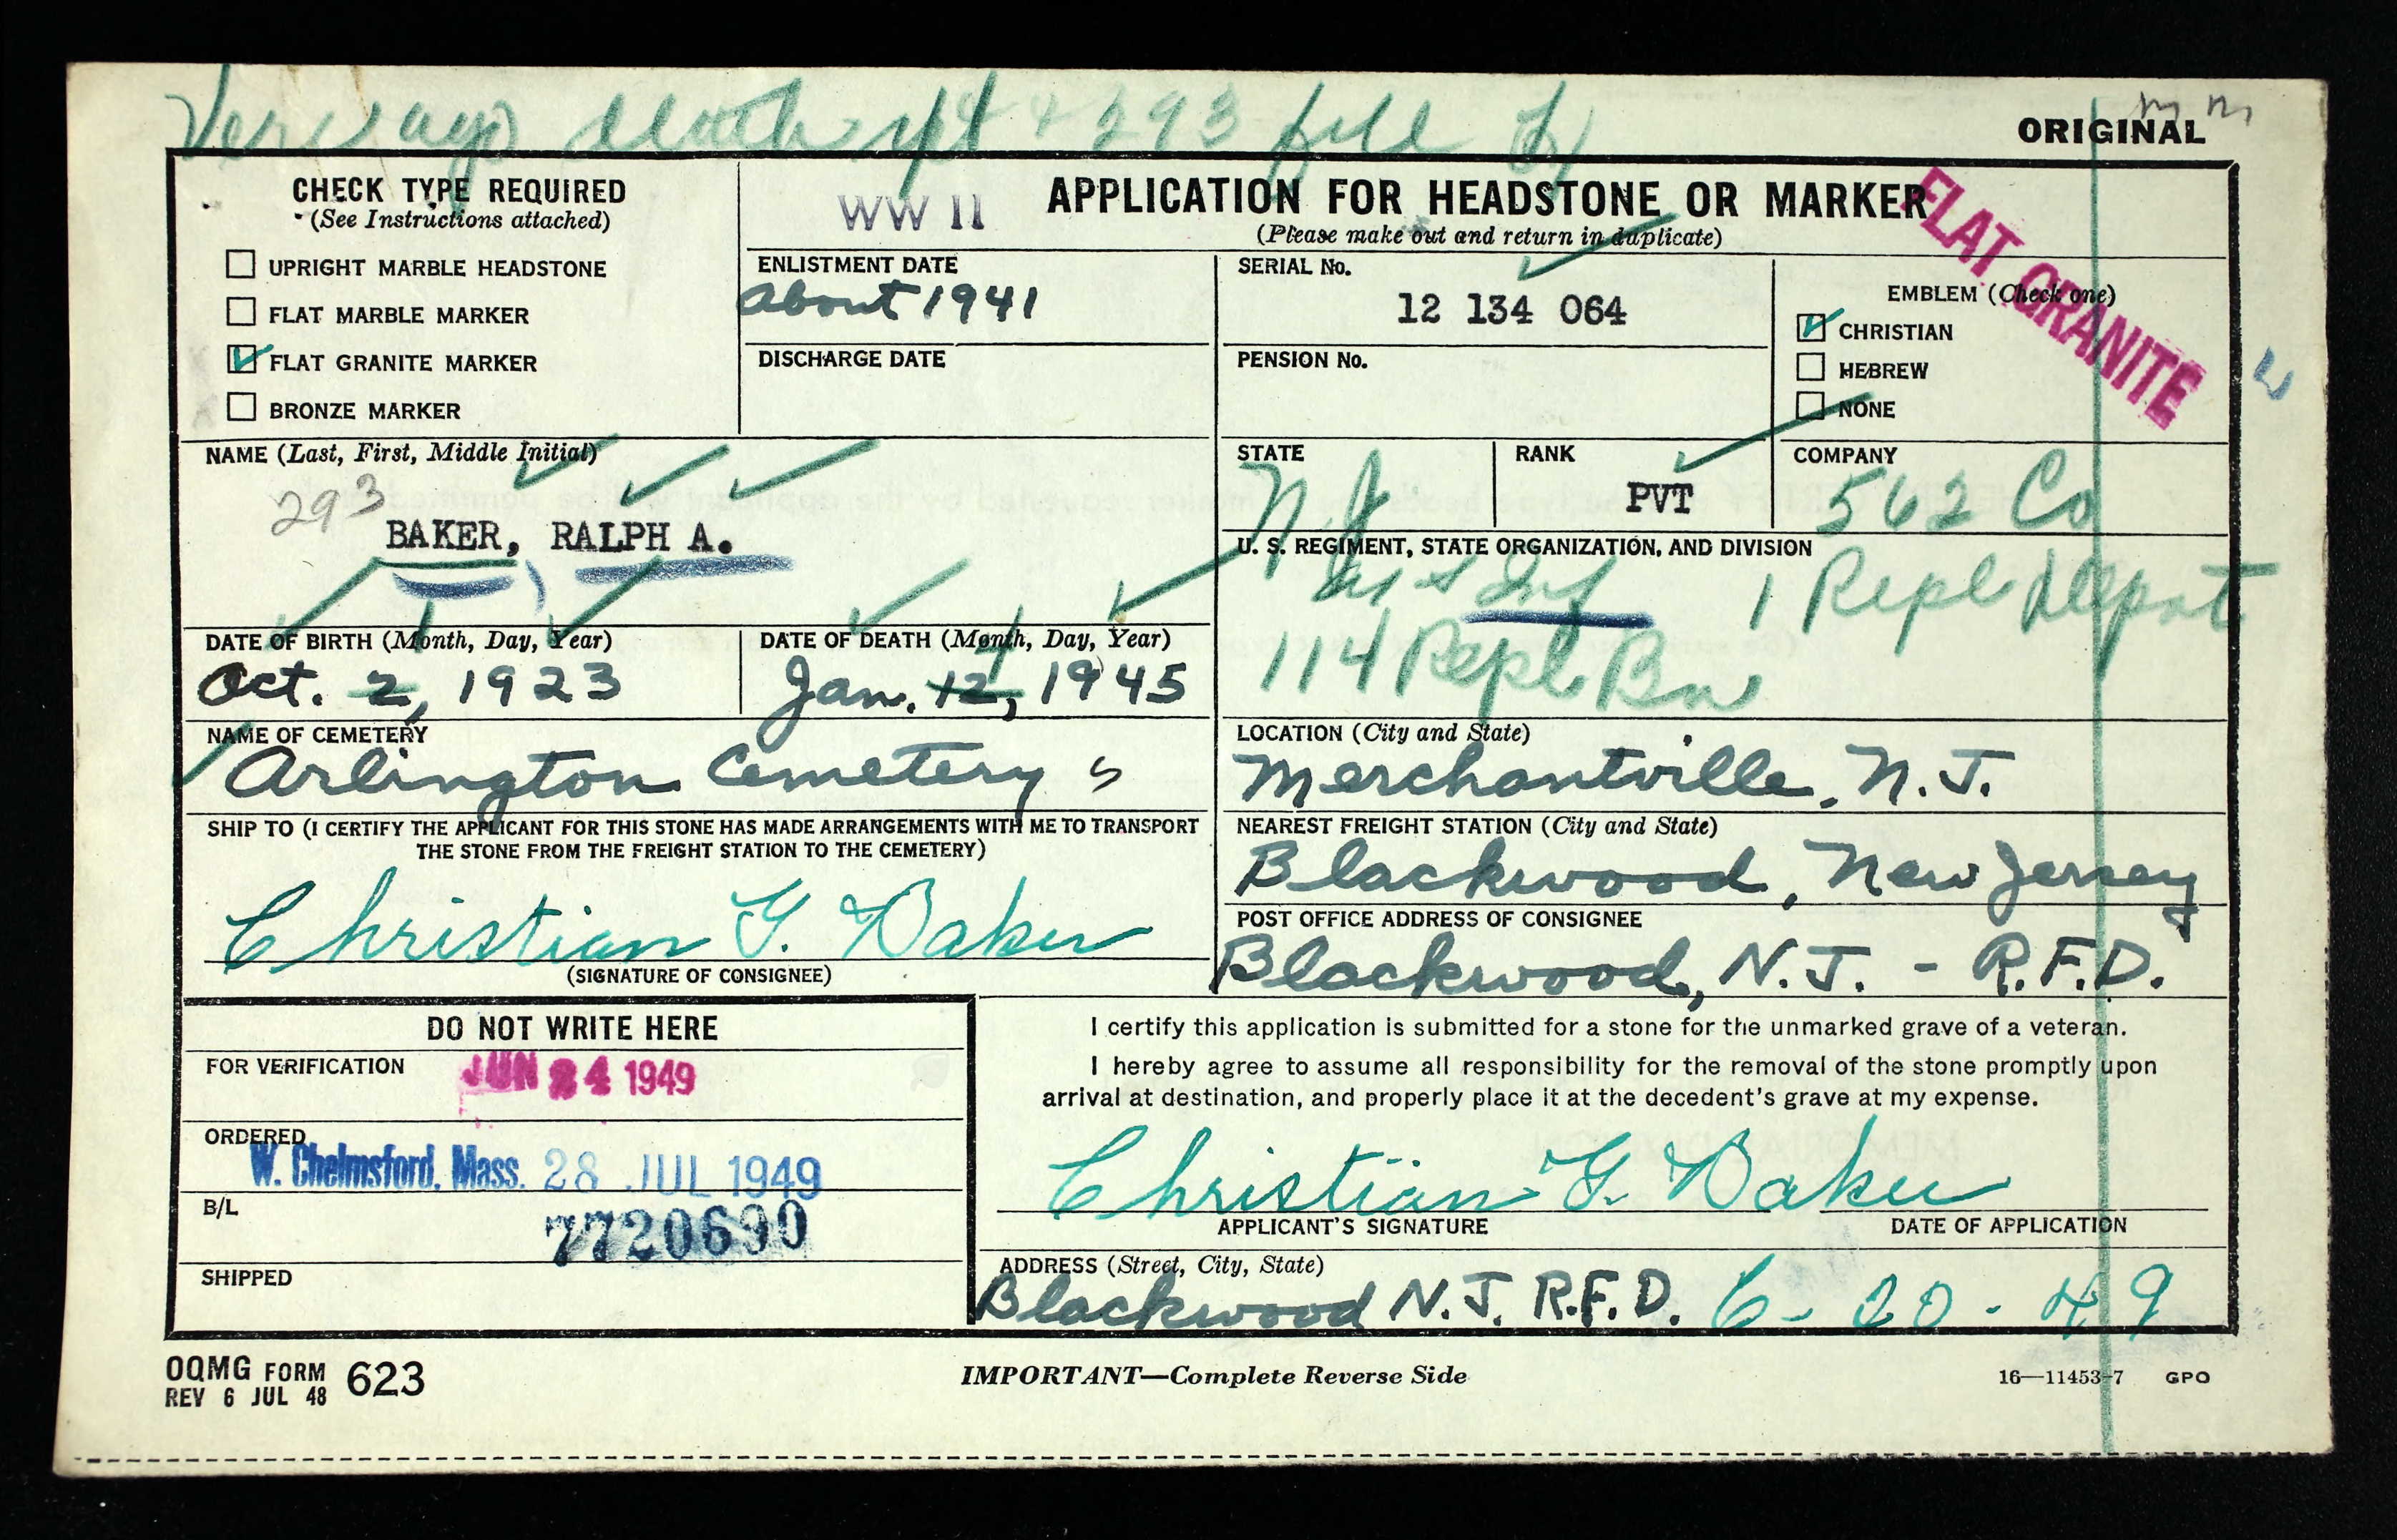 death rpt & 293 file
ORIGINAL
CHECK TYPE REQUIRED
(See Instructions attached)
UPRIGHT MARBLE HEADSTONE
FLAT MARBLE MARKER
FLAT GRANITE MARKER
BRONZE MARKER
WW II
APPLICATION FOR HEADSTONE OR MARKER
(Please make out and return in duplicate)
FLAT GRANITE
ENLISTMENT DATE
about 1941
DISCHARGE DATE
SERIAL No.
12 134 064
PENSION No.
EMBLEM (Check one)
CHRISTIAN
HEBREW
NONE
NAME (Last, First, Middle Initial)
293
BAKER, RALPH A.
STATE
N J
RANK
PVT
COMPANY
562 Co
U. S. REGIMENT, STATE ORGANIZATION, AND DIVISION
Inf 1 Repl Depot
114 Repl Bn
DATE OF BIRTH (Month, Day, Year)
1
Oct. 2, 1923
DATE OF DEATH (Month, Day, Year)
4
Jan. 12, 1945
NAME OF CEMETERY
Arlington Cemetery
LOCATION (City and State)
Merchantville, N.J.
SHIP TO (I CERTIFY THE APPLICANT FOR THIS STONE HAS MADE ARRANGEMENTS WITH ME TO TRANSPORT
THE STONE FROM THE FREIGHT STATION TO THE CEMETERY)
Christian G. Baker
(SIGNATURE OF CONSIGNEE)
NEAREST FREIGHT STATION (City and State)
Blackwood, New Jersey
POST OFFICE ADDRESS OF CONSIGNEE
Blackwood, N.J. - R.F.D.
DO NOT WRITE HERE
FOR VERIFICATION
JUN 24 1949
ORDERED
W. Chelmsford, Mass. 28 JUL 1949
B/L
7720690
SHIPPED
I certify this application is submitted for a stone for the unmarked grave of a veteran.
I hereby agree to assume all responsibility for the removal of the stone promptly upon
arrival at destination, and properly place it at the decedent's grave at my expense.
Christian G. Baker
APPLICANT'S SIGNATURE
DATE OF APPLICATION
ADDRESS (Street, City, State)
Blackwood N.J. R.F.D. 6-20-49
OQMG FORM 623
REV 6 JUL 48
IMPORTANT—Complete Reverse Side
16—11453-7 GPO